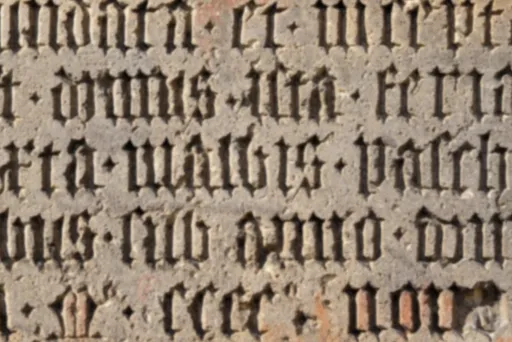 undata et · incept
t · domus · ista · feria
rta · inalbis · pasch
bus · sub anno · dni
· m · cccc · non